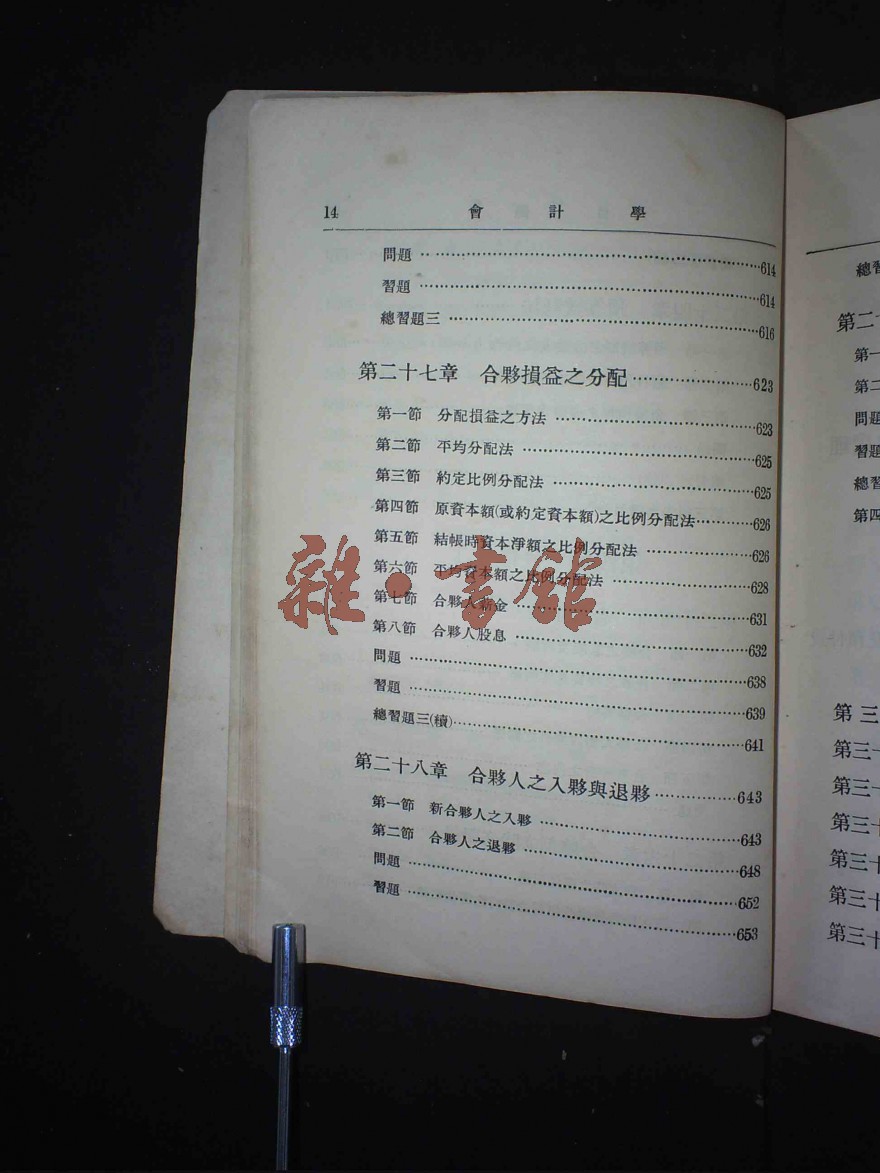 14 會計學
問題 ……614
習題 ……614
總習題三 ……616
第二十七章 合夥損益之分配……623
第一節 分配損益之方法 ……623
第二節 平均分配法 ……625
第三節 約定比例分配法 ……625
第四節 原資本額(或約定資本額)之比例分配法……626
第五節 結帳時資本淨額之比例分配法 ……626
第六節 平均資本額之比例分配法 ……628
第七節 合夥人薪金 ……631
第八節 合夥人股息 ……632
問題 ……638
習題 ……639
總習題三(續)……641
第二十八章 合夥人之入夥與退夥 ……643
第一節 新合夥人之入夥 ……643
第二節 合夥人之退夥 ……648
問題 ……652
習題 ……653
雜·書館
總習
第二十
第一
第二
問題
習題
總習
第四
第三
第三十
第三十
第三十
第三十
第三十
第三十